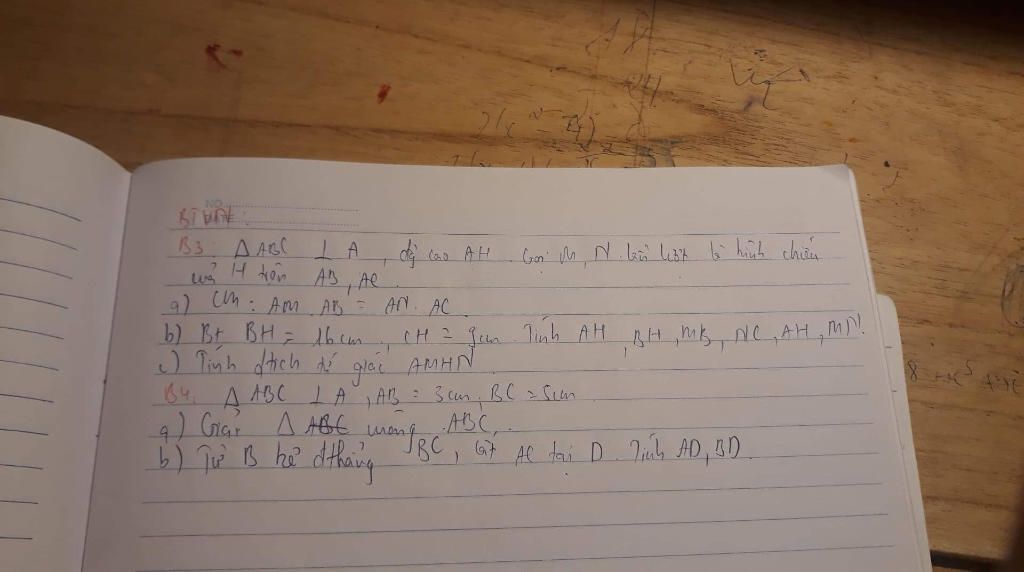 NO.
BTVN:
B3: Δ ABC ⊥ A, đg cao AH. Gọi M, N lần lượt là hình chiếu
của H trên AB, AC
a) CM: AM. AB = AN. AC
b) Bt BH = 16cm, CH = 9cm. Tính AH, BH, MB, NC, AH, MN.
c) Tính dtích tứ giác AMHN
B4: Δ ABC ⊥ A, AB = 3cm, BC = 5cm
a) Giải Δ vuông ABC.
b) Từ B kẻ đthẳng BC, cắt AC tại D. Tính AD, BD.